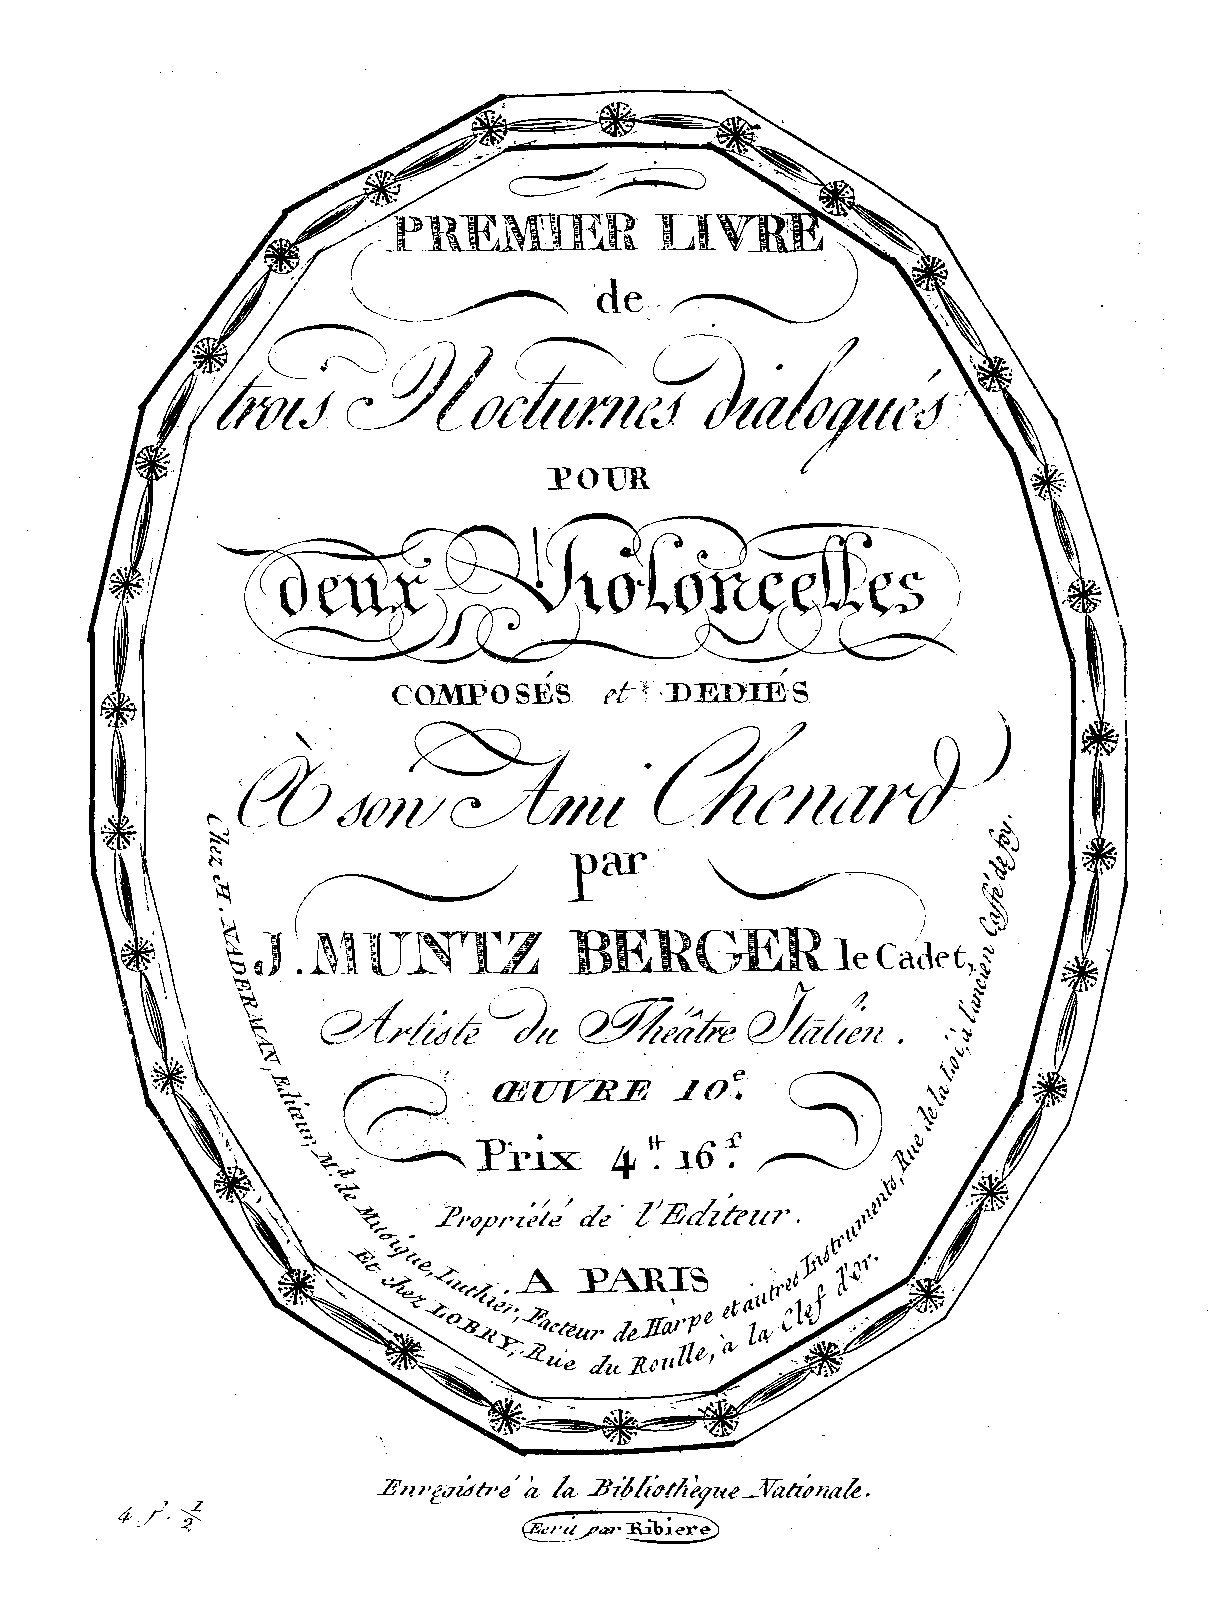 PREMIER LIVRE
de
trois Nocturnes dialogués
POUR
deux Violoncelles
COMPOSÉS et DEDIÉS
À son Ami Chenard
par
J. MUNTZ BERGER le Cadet,
Artiste du Théâtre Italien.
ŒUVRE 10e.
Prix 4tt. 16s.
Propriété de l'Editeur.
A PARIS
Chez H. NADERMAN, Editeur, Md. de Musique, Luthier, Facteur de Harpe et autres Instruments, Rue de la Loi, à l'ancien Caffé de foy.
Et chez LOBRY, Rue du Roulle, à la Clef d'or.
Enregistré à la Bibliothèque Nationale.
Ecrit par Ribiere
4 f. 1/2